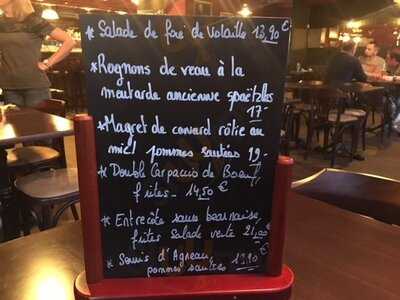 * Salade de foie de volaille 13,90 €
* Rognons de veau à la
moutarde ancienne spaëtzles
17-
* Magret de canard rôtie au
miel pommes sautées 19-
* Double Carpaccio de Boeuf,
frites - 14,50 €
* Entrecôte sauce bearnaise,
frites salade verte 21,00 €
* Souris d'Agneau, 19,90 €
pommes sautées